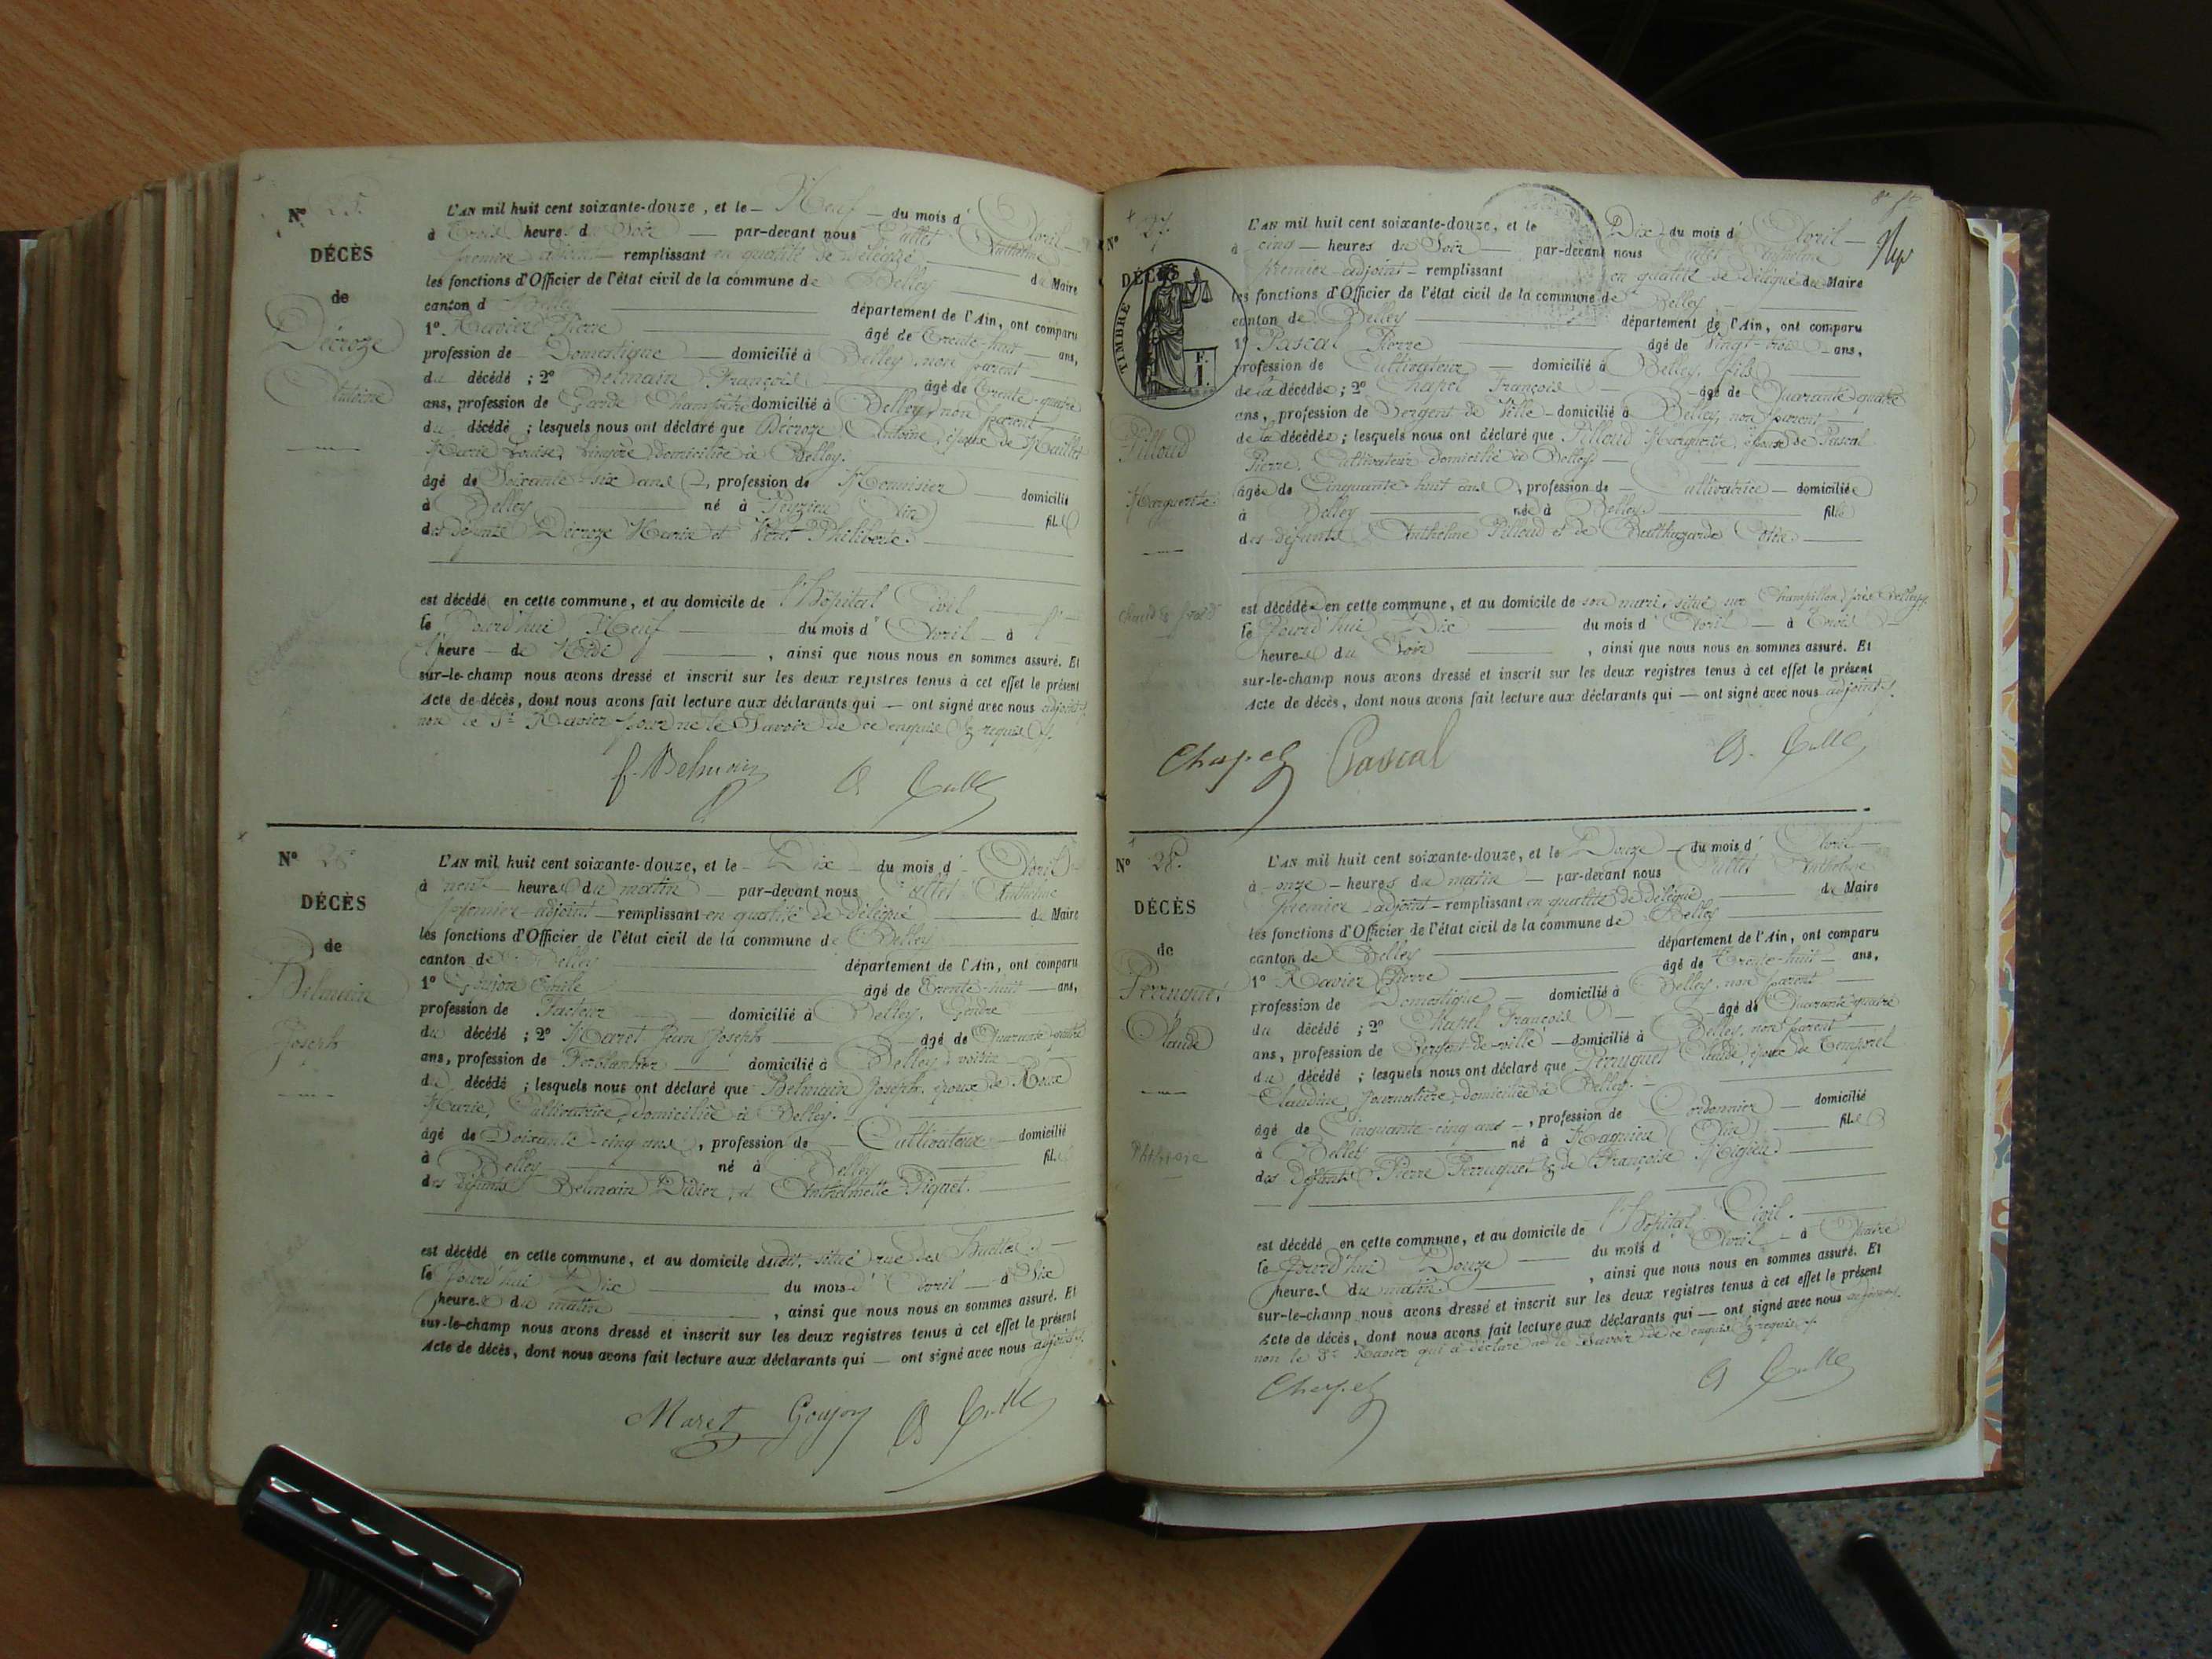 N° 25.
DÉCÈS
de
Décroze
Antoine
L'AN mil huit cent soixante-douze, et le Neuf du mois d'Avril
à Trois heures du Soir par-devant nous Cullet Anthelme
premier adjoint remplissant en qualité de délégué du Maire
les fonctions d'Officier de l'état civil de la commune de Belley
canton d Belley département de l'Ain, ont comparu
1° Ravier Pierre âgé de Trente-huit ans,
profession de Domestique domicilié à Belley, non parent
du décédé ; 2° Belmain François âgé de Trente-quatre
ans, profession de Garde Champêtre domicilié à Belley, non parent
du décédé ; lesquels nous ont déclaré que Décroze Antoine, époux de Maillet
Marie Louise, domiciliée à Belley.
âgé de Soixante-six ans, profession de Menuisier domicilié
à Belley né à Peyzieu (Ain) fils
des défunts Décroze Marie et Philiberte.
est décédé en cette commune, et au domicile de l'hôpital Civil
le Jourd'hui Neuf du mois d'Avril à
heure de Midi, ainsi que nous nous en sommes assuré. Et
sur-le-champ nous avons dressé et inscrit sur les deux registres tenus à cet effet le présent
Acte de décès, dont nous avons fait lecture aux déclarants qui — ont signé avec nous adjoint,
non le Sr Ravier pour ne le Savoir de ce enquis & requis.
f. Belmain A Cullet
N° 26
DÉCÈS
de
Belmain
Joseph
L'AN mil huit cent soixante-douze, et le Dix du mois d'Avril
à neuf heures du matin par-devant nous Cullet Anthelme
premier adjoint remplissant en qualité de délégué du Maire
les fonctions d'Officier de l'état civil de la commune de Belley
canton de Belley département de l'Ain, ont comparu
1° Goujon Emile âgé de Trente-huit ans,
profession de Facteur domicilié à Belley, Gendre
du décédé ; 2° Marret Jean Joseph âgé de Quarante-quatre
ans, profession de Ferblantier domicilié à Belley, voisin
du décédé ; lesquels nous ont déclaré que Belmain Joseph, époux de Roux
Marie, Cultivatrice, domiciliée à Belley.
âgé de Soixante-cinq ans, profession de Cultivateur domicilié
à Belley né à Belley fils
des défunts Belmain Didier, et Anthelmette Piguet.
est décédé en cette commune, et au domicile dudit, situé rue des
le Jourd'hui Dix du mois d'Avril à Six
heures du matin, ainsi que nous nous en sommes assuré. Et
sur-le-champ nous avons dressé et inscrit sur les deux registres tenus à cet effet le présent
Acte de décès, dont nous avons fait lecture aux déclarants qui — ont signé avec nous adjoint.
Maret Goujon A Cullet
N° 27.
DÉCÈS
TIMBRE
Pilloud
Marguerite
L'AN mil huit cent soixante-douze, et le Dix du mois d'Avril
à cinq heures du Soir par-devant nous Cullet Anthelme
premier adjoint remplissant en qualité de délégué du Maire
les fonctions d'Officier de l'état civil de la commune de Belley
canton de Belley département de l'Ain, ont comparu
1° Pascal Pierre âgé de Vingt-trois ans,
profession de Cultivateur domicilié à Belley, fils
de la décédée ; 2° Chapel François âgé de Quarante-quatre
ans, profession de Sergent de Ville domicilié à Belley, non parent
de la décédée ; lesquels nous ont déclaré que Pilloud Marguerite, épouse de Pascal
Pierre, Cultivateur domicilié à Belley
âgée de Cinquante-huit ans, profession de Cultivatrice domiciliée
à Belley née à Belley fille
des défunts Anthelme Pilloud et de
est décédée en cette commune, et au domicile de son mari, situé sur Champillon, près Belley,
le Jourd'hui Dix du mois d'Avril à Trois
heures du Soir, ainsi que nous nous en sommes assuré. Et
sur-le-champ nous avons dressé et inscrit sur les deux registres tenus à cet effet le présent
Acte de décès, dont nous avons fait lecture aux déclarants qui — ont signé avec nous adjoint.
Chapel Pascal A. Cullet
N° 28.
DÉCÈS
de
Perruquet
Claude
Phthisie
L'AN mil huit cent soixante-douze, et le Douze du mois d'Avril
à onze heures du matin par-devant nous Cullet Anthelme
premier adjoint remplissant en qualité de délégué du Maire
les fonctions d'Officier de l'état civil de la commune de Belley
canton de Belley département de l'Ain, ont comparu
1° Ravier Pierre âgé de Trente-huit ans,
profession de Domestique domicilié à Belley, non parent
du décédé ; 2° Chapel François âgé de Quarante-quatre
ans, profession de Sergent-de-ville domicilié à Belley, non parent
du décédé ; lesquels nous ont déclaré que Perruquet Claude, époux de Temporel
Claudine, Journalière, domiciliée à Belley.
âgé de Cinquante-cinq ans, profession de Cordonnier domicilié
à Belley né à Magnieu (Ain) fils
des défunts Pierre Perruquet & de Françoise
est décédé en cette commune, et au domicile de l'hôpital Civil.
le Jourd'hui Douze du mois d'Avril à Quatre
heures du matin, ainsi que nous nous en sommes assuré. Et
sur-le-champ nous avons dressé et inscrit sur les deux registres tenus à cet effet le présent
Acte de décès, dont nous avons fait lecture aux déclarants qui — ont signé avec nous adjoint.
non le Sr Ravier qui a déclaré ne le Savoir de ce enquis & requis.
Chapel A Cullet